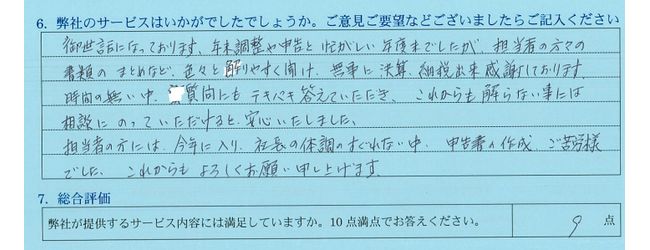 6. 弊社のサービスはいかがでしたでしょうか。ご意見ご要望などございましたらご記入ください
御世話になっております、年末調整や申告と忙がしい年度末でしたが、担当者の方々の
書類のまとめなど、色々と解りやすく聞け、無事に決算、納税出来感謝しております。
時間の無い中、質問にもテキパキ答えていただき、これからも解らない事には
相談にのっていただけると安心いたしました、
担当者の方には、今年に入り、社長の体調のすぐれない中、申告書の作成、ご苦労様
でした、これからもよろしくお願い申し上げます。
7. 総合評価
弊社が提供するサービス内容には満足していますか。10点満点でお答えください。 9 点